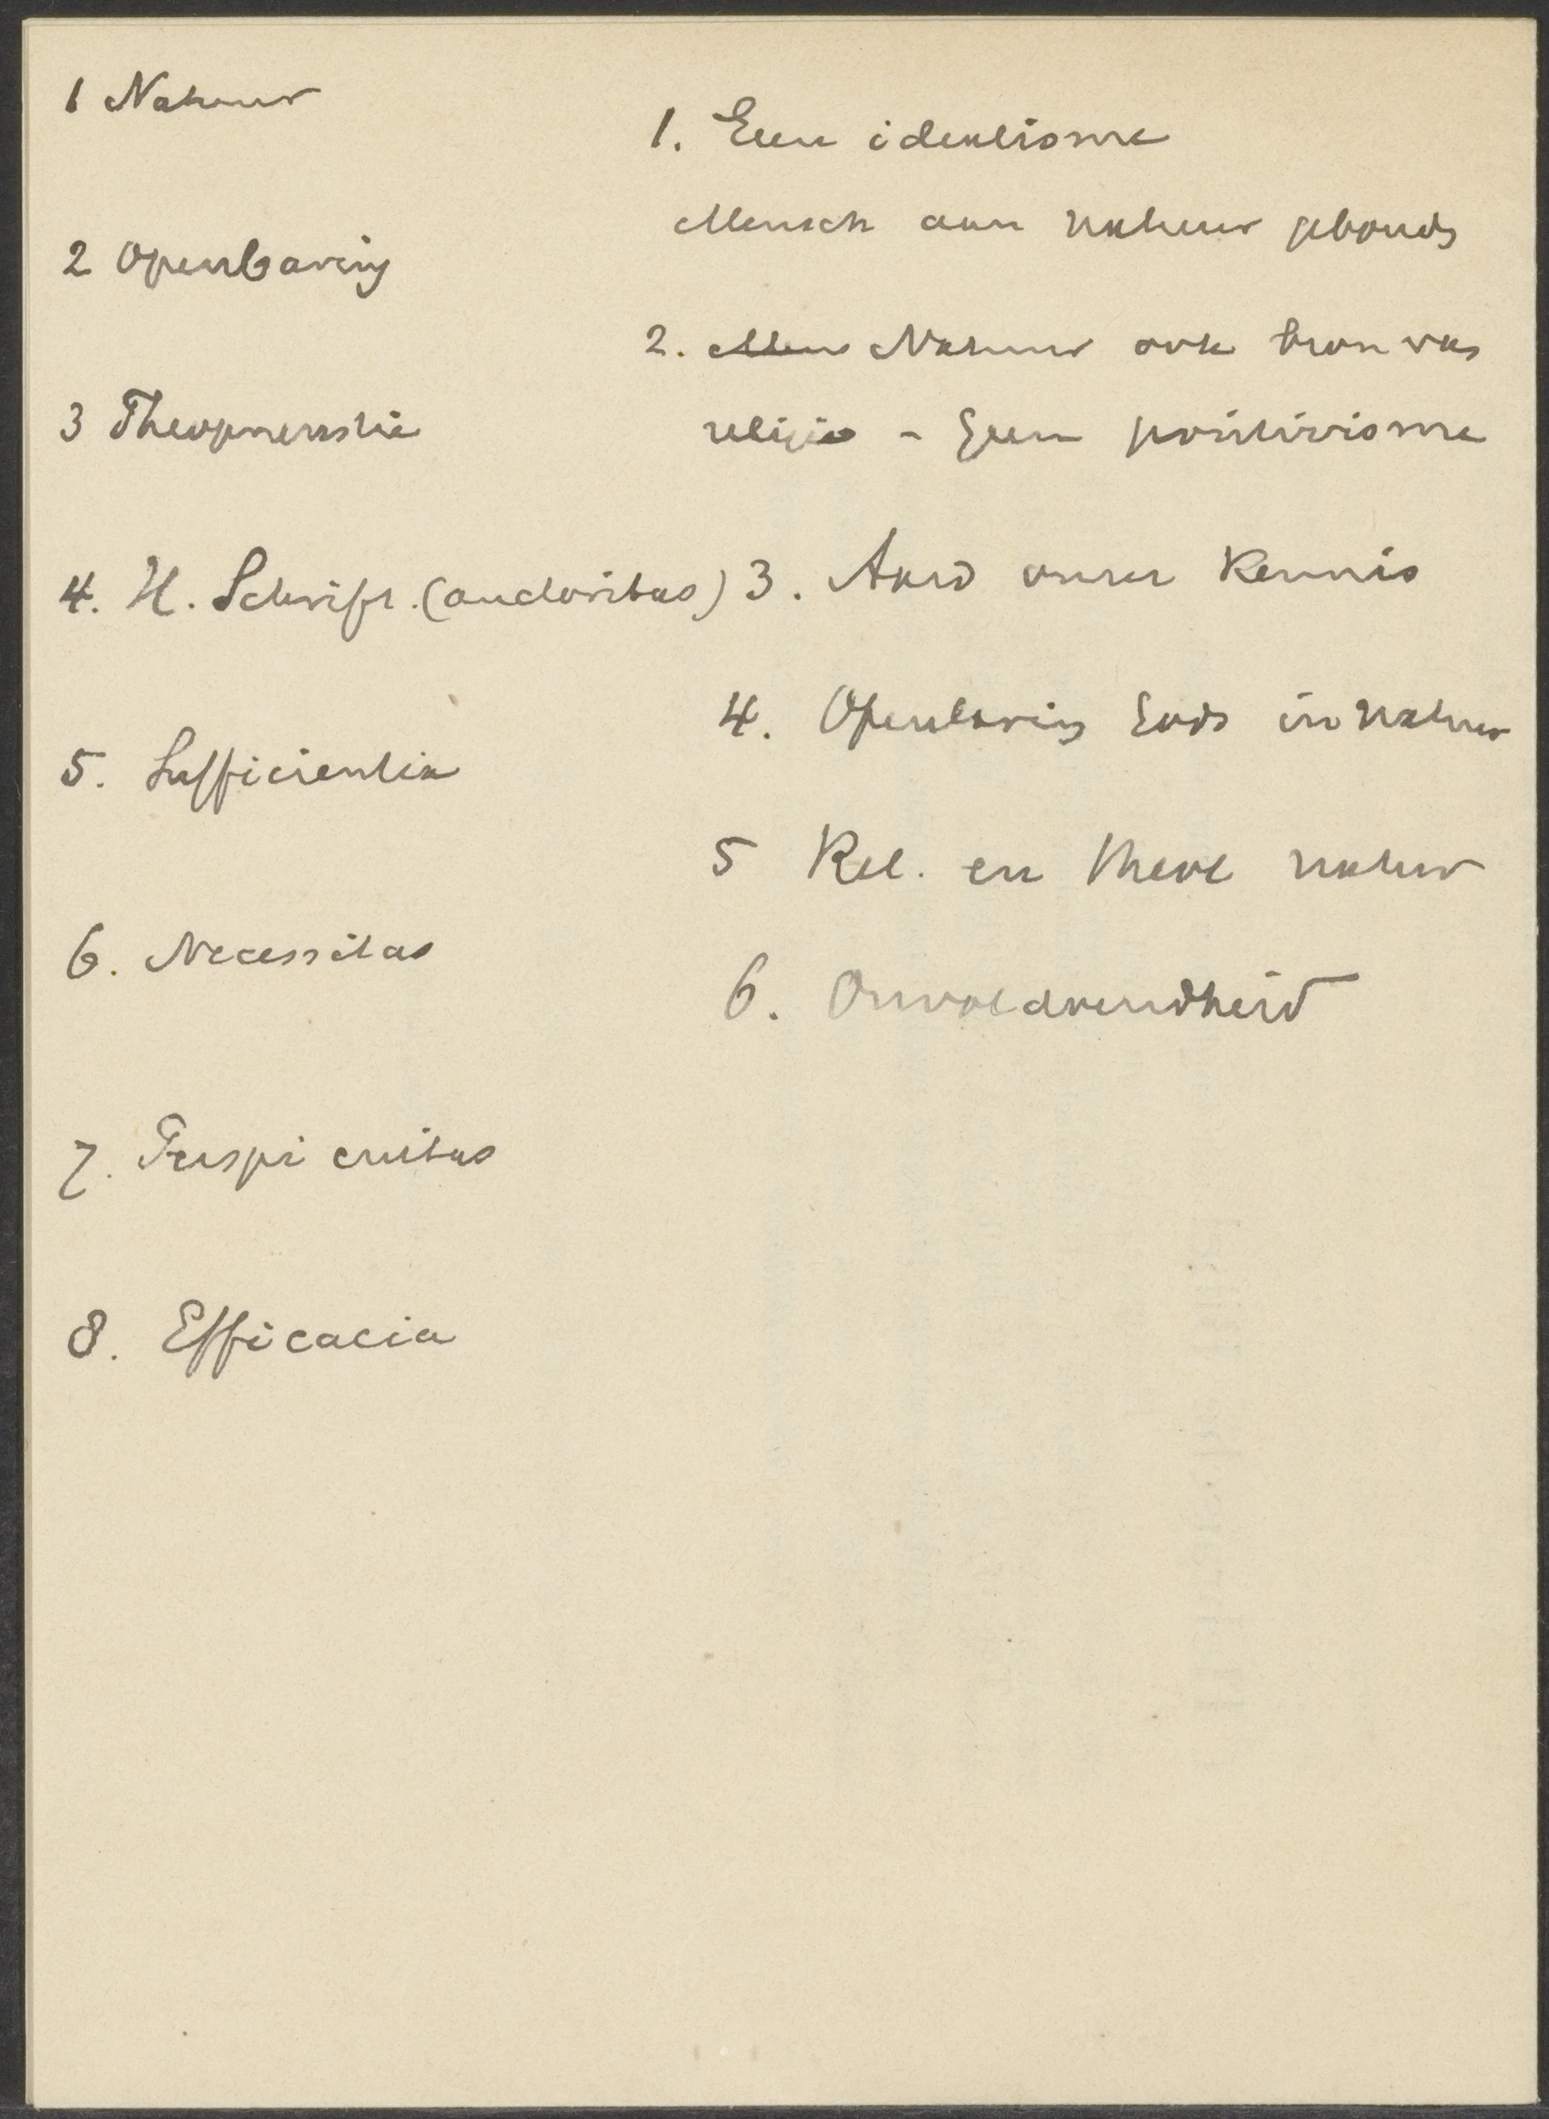 1 Natuur
2 Openbaring
3 Theopneustie
4. H. Schrift. (auctoritas)
5. Sufficientia
6. Necessitas
7. Perspicuitas
8. Efficacia
1. Geen idealisme
Mensch aan natuur gebonden
2. Natuur ook bron van
religie - Geen positivisme
3. Aard onzer Kennis
4. Openbaring Gods in natuur
5 Rel. en theol natur
6. Onvoldoendheid